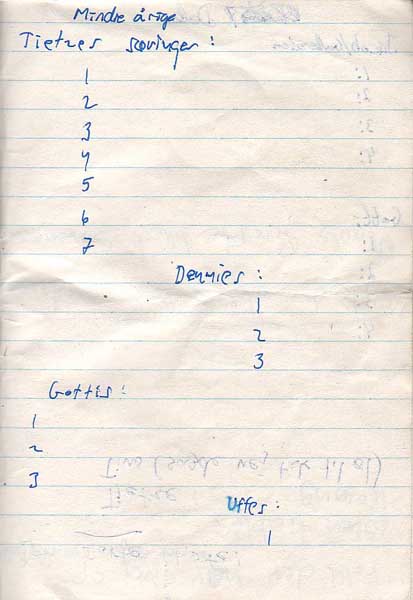 Mindre årige
Tietzes scoringer :
1
2
3
4
5
6
7
Dennies :
1
2
3
Gottis :
1
2
3
Uffes :
1